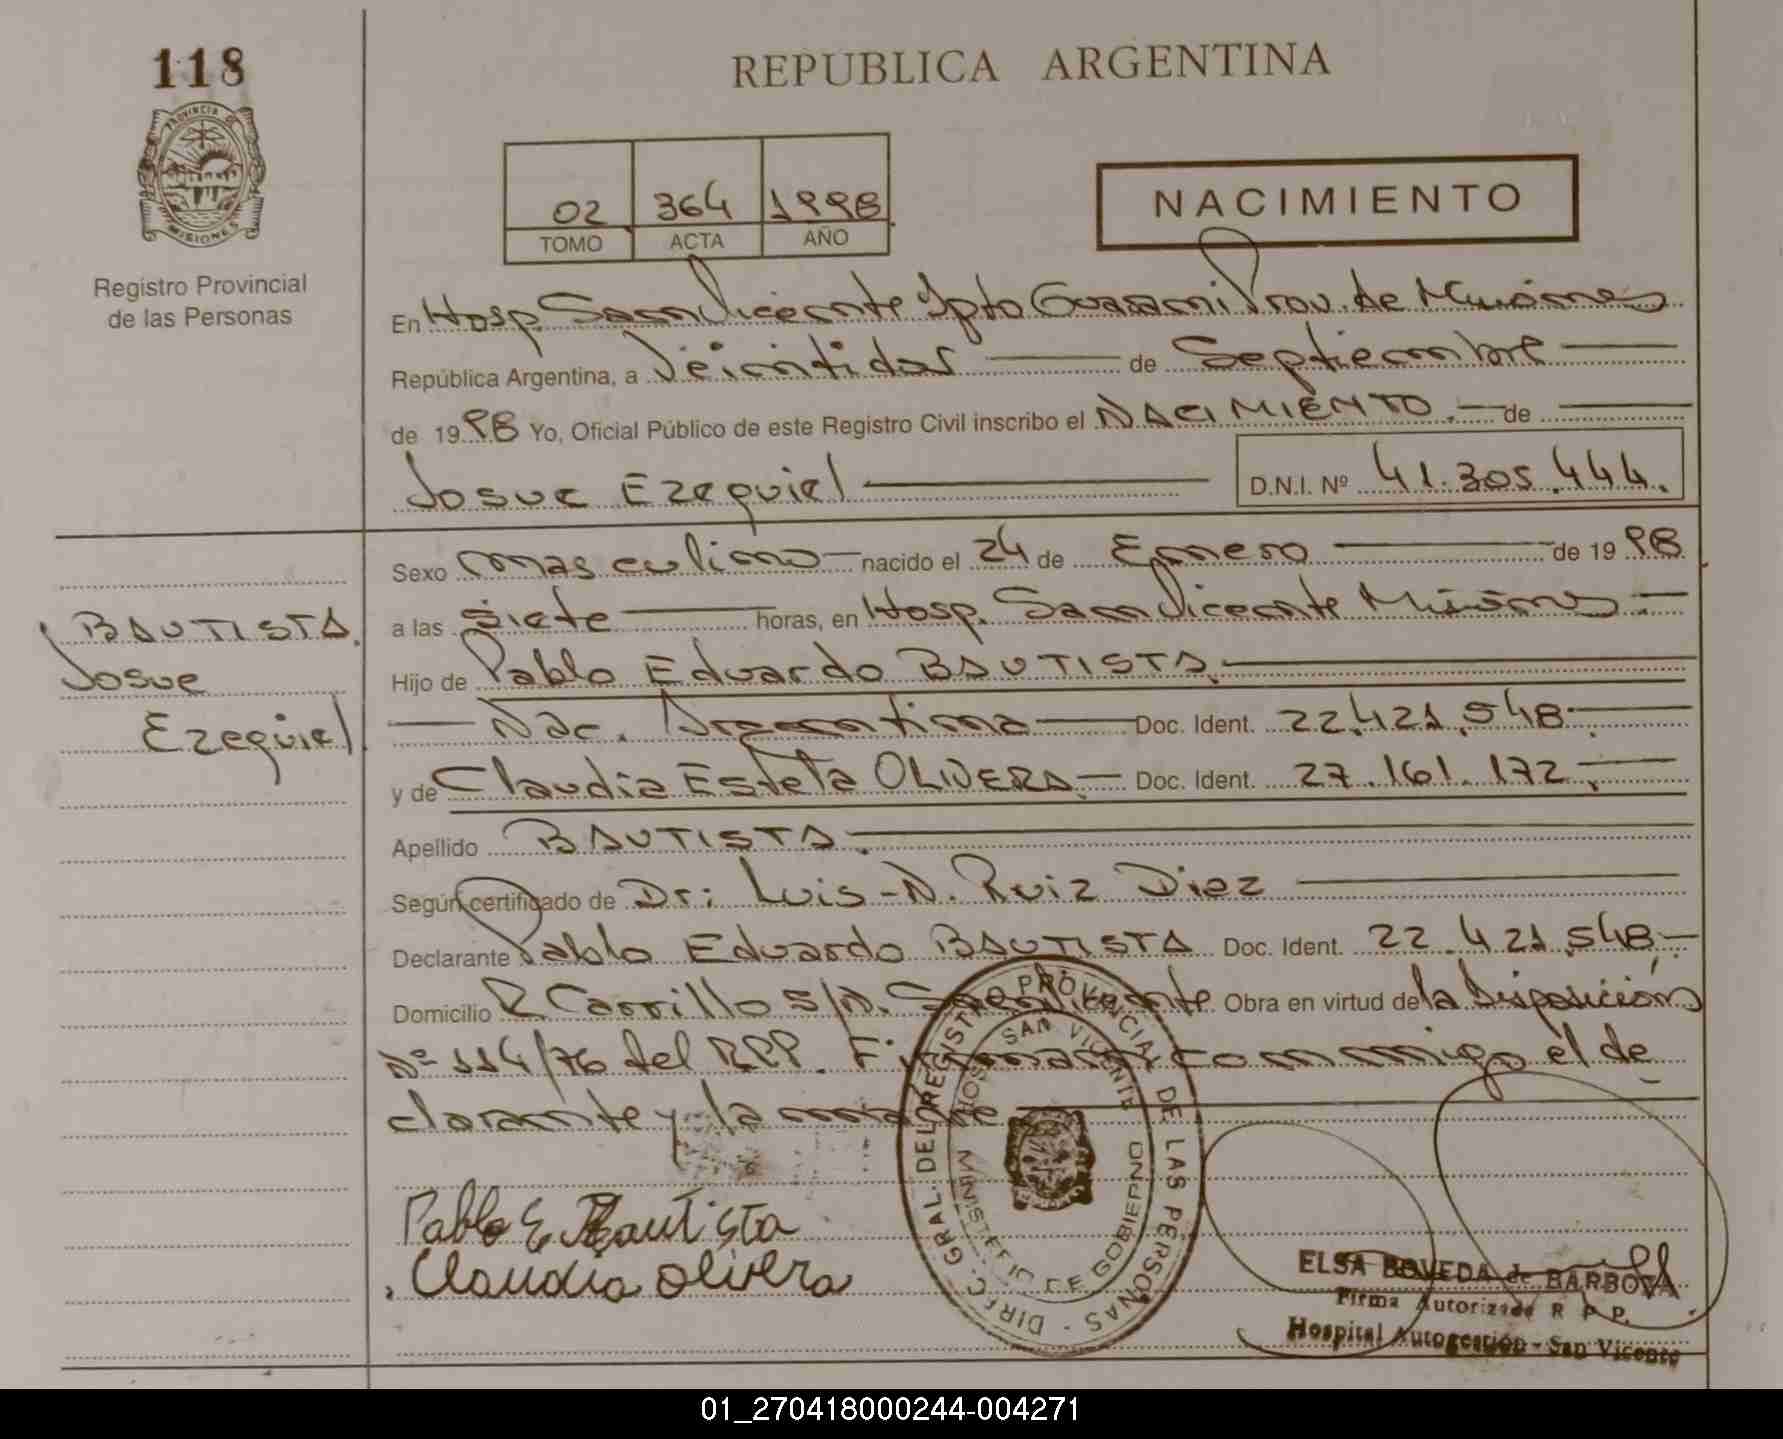 118
REPUBLICA ARGENTINA
PROVINCIA DE
MISIONES
Registro Provincial
de las Personas
02 364 1998
TOMO ACTA AÑO
NACIMIENTO
En Hosp. San Vicente Dpto Guarani Prov. de Misiones
República Argentina, a Veintidos de Septiembre
de 1998 Yo, Oficial Público de este Registro Civil inscribo el NACIMIENTO.- de
Josue Ezequiel D.N.I. Nº 41.305.444.
Sexo masculino nacido el 24 de Enero de 1998
a las siete horas, en Hosp. San Vicente Misiones
BAUTISTA.
Josue
Ezequiel.
Hijo de Pablo Eduardo BAUTISTA.
Nac. Argentina Doc. Ident. 22.421.548.
y de Claudia Estela OLIVERA. Doc. Ident. 27.161.172.
Apellido BAUTISTA.
Según certificado de Dr: Luis-N. Ruiz Diez
Declarante Pablo Eduardo BAUTISTA Doc. Ident. 22.421.548
Domicilio R. Carrillo S/N. San Vicente Obra en virtud de la Disposición
Nº 114/76 del RPP. Firman conmigo el de
clarante y la madre
Pablo E Bautista
Claudia Olivera
DIREC. GRAL. DEL REGISTRO PROVINCIAL DE LAS PERSONAS -
HOSP SAN VICENTE
MINISTERIO DE GOBIERNO
ELSA BOVEDA de BARBOZA
Firma Autorizada R P P.
Hospital Autogestión - San Vicente
01_270418000244-004271